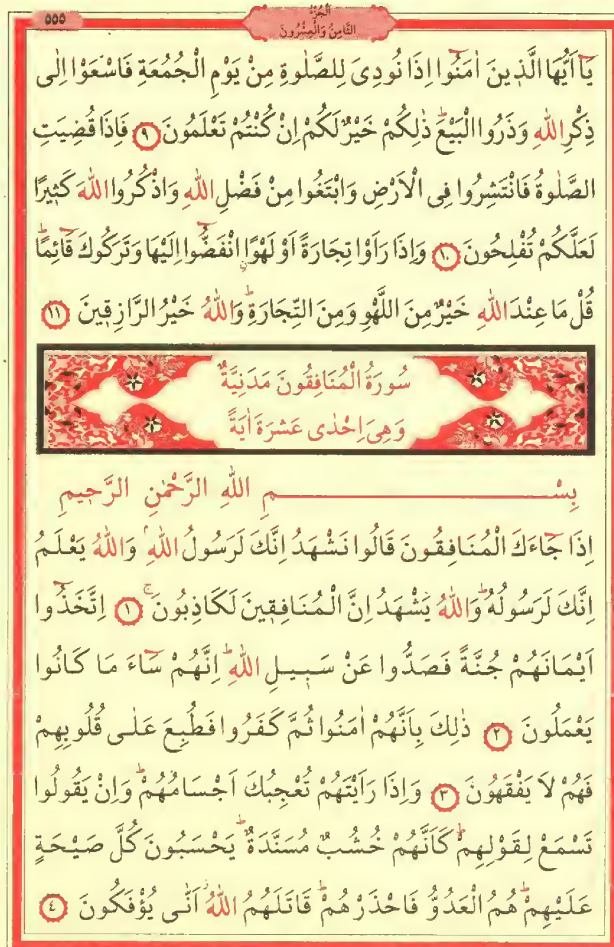 ٥٥٥
اَلْجُزْءُ
الثَّامِنُ وَالْعِشْرُونَ
يَٓا اَيُّهَا الَّذ۪ينَ اٰمَنُٓوا اِذَا نُودِىَ لِلصَّلٰوةِ مِنْ يَوْمِ الْجُمُعَةِ فَاسْعَوْا اِلٰى
ذِكْرِ اللّٰهِ وَذَرُوا الْبَيْعَۜ ذٰلِكُمْ خَيْرٌ لَكُمْ اِنْ كُنْتُمْ تَعْلَمُونَ ﴿٩﴾ فَاِذَا قُضِيَتِ
الصَّلٰوةُ فَانْتَشِرُوا فِى الْاَرْضِ وَابْتَغُوا مِنْ فَضْلِ اللّٰهِ وَاذْكُرُوا اللّٰهَ كَث۪يرًا
لَعَلَّكُمْ تُفْلِحُونَ ﴿١٠﴾ وَاِذَا رَاَوْا تِجَارَةً اَوْ لَهْوًاۨ انْفَضُّٓوا اِلَيْهَا وَتَرَكُوكَ قَٓائِمًاۜ
قُلْ مَا عِنْدَ اللّٰهِ خَيْرٌ مِنَ اللَّهْوِ وَمِنَ التِّجَارَةِۜ وَاللّٰهُ خَيْرُ الرَّازِق۪ينَ ﴿١١﴾
سُورَةُ الْمُنَافِقُونَ مَدَنِيَّةٌ
وَهِىَ اِحْدٰى عَشَرَةَ اٰيَةً
بِسْمِ اللّٰهِ الرَّحْمٰنِ الرَّح۪يمِ
اِذَا جَٓاءَكَ الْمُنَافِقُونَ قَالُوا نَشْهَدُ اِنَّكَ لَرَسُولُ اللّٰهِۢ وَاللّٰهُ يَعْلَمُ
اِنَّكَ لَرَسُولُهُۜ وَاللّٰهُ يَشْهَدُ اِنَّ الْمُنَافِق۪ينَ لَكَاذِبُونَۚ ﴿١﴾ اِتَّخَذُٓوا
اَيْمَانَهُمْ جُنَّةً فَصَدُّوا عَنْ سَب۪يلِ اللّٰهِۜ اِنَّهُمْ سَٓاءَ مَا كَانُوا
يَعْمَلُونَ ﴿٢﴾ ذٰلِكَ بِاَنَّهُمْ اٰمَنُوا ثُمَّ كَفَرُوا فَطُبِعَ عَلٰى قُلُوبِهِمْ
فَهُمْ لَا يَفْقَهُونَ ﴿٣﴾ وَاِذَا رَاَيْتَهُمْ تُعْجِبُكَ اَجْسَامُهُمْۜ وَاِنْ يَقُولُوا
تَسْمَعْ لِقَوْلِهِمْۜ كَاَنَّهُمْ خُشُبٌ مُسَنَّدَةٌۜ يَحْسَبُونَ كُلَّ صَيْحَةٍ
عَلَيْهِمْۜ هُمُ الْعَدُوُّ فَاحْذَرْهُمْۜ قَاتَلَهُمُ اللّٰهُۘ اَنّٰى يُؤْفَكُونَ ﴿٤﴾